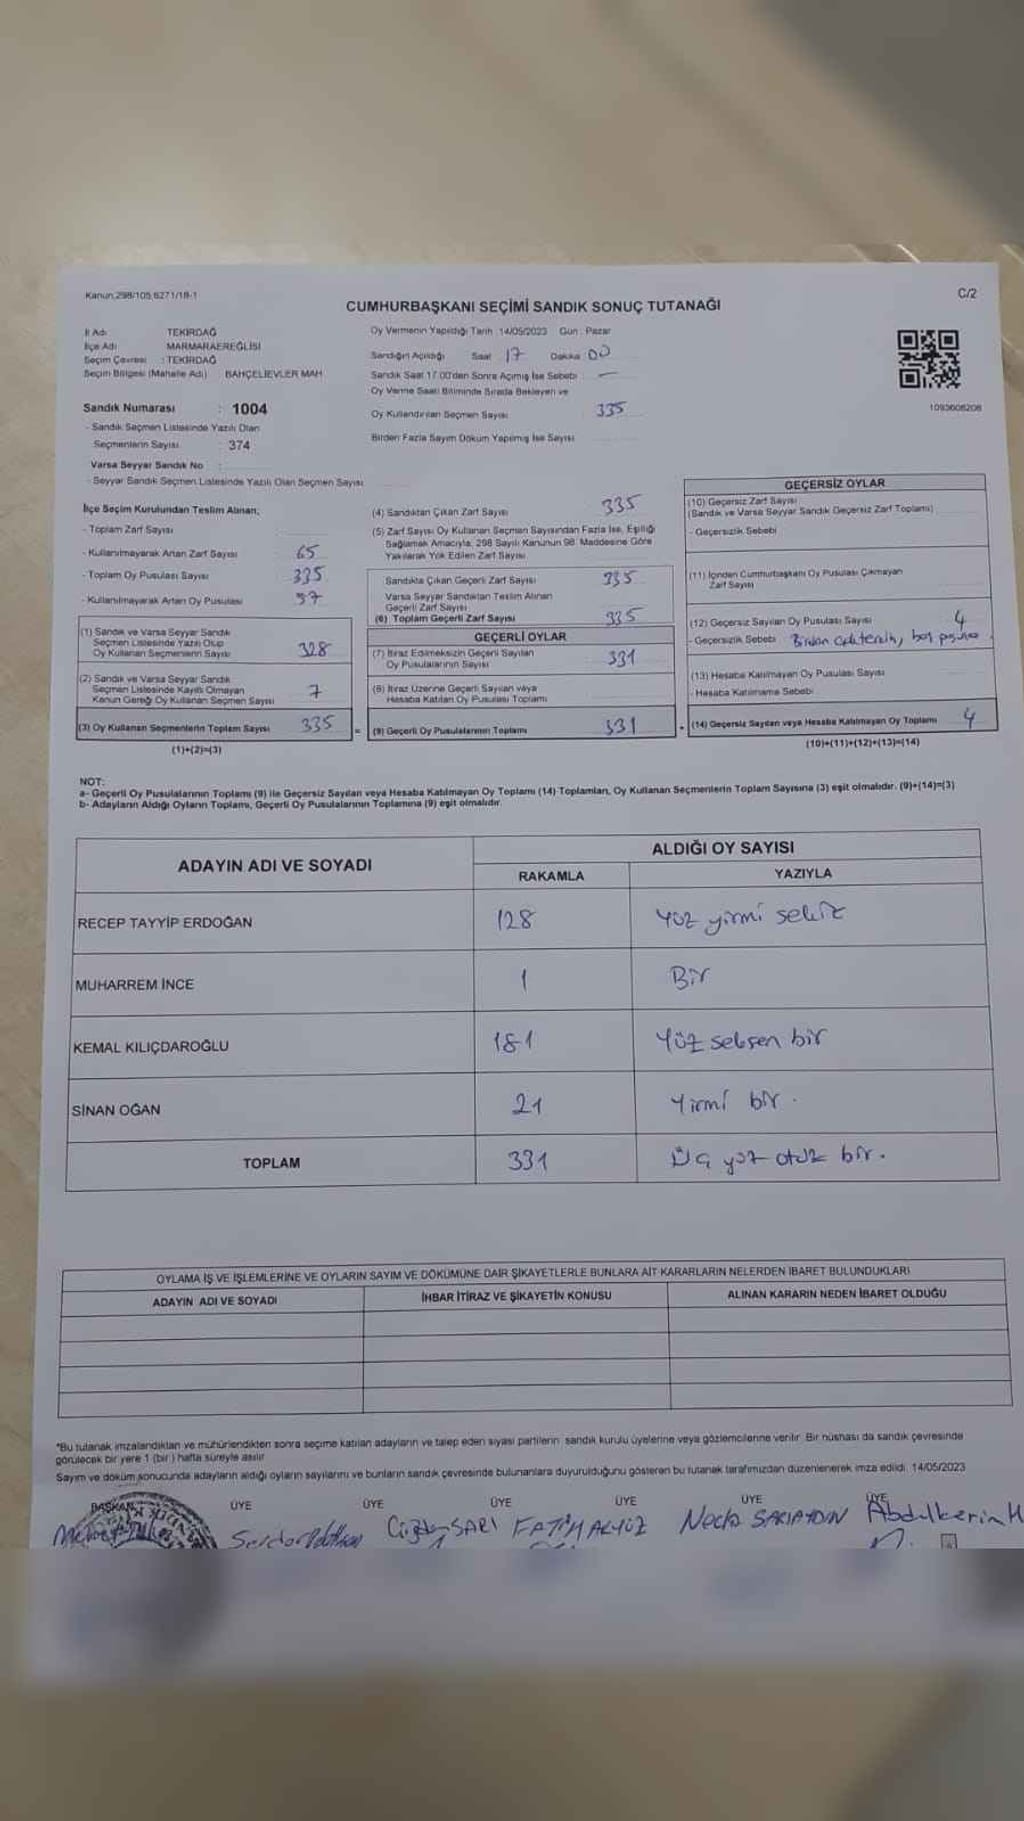 Kanun,298/105,6271/18-1
C/2
CUMHURBAŞKANI SEÇİMİ SANDIK SONUÇ TUTANAĞI
İl Adı TEKİRDAĞ
İlçe Adı MARMARAEREĞLİSİ
Seçim Çevresi : TEKİRDAĞ
Seçim Bölgesi (Mahalle Adı) BAHÇELİEVLER MAH
Sandık Numarası : 1004
- Sandık Seçmen Listesinde Yazılı Olan
Seçmenlerin Sayısı : 374
Varsa Seyyar Sandık No :
- Seyyar Sandık Seçmen Listesinde Yazılı Olan Seçmen Sayısı
Oy Vermenin Yapıldığı Tarih 14/05/2023 Gün : Pazar
Sandığın Açıldığı Saat 17 Dakika 00
Sandık Saat 17.00'den Sonra Açımış İse Sebebi : —
Oy Verme Saati Bitiminde Sırada Bekleyen ve
Oy Kullandırılan Seçmen Sayısı 335
Birden Fazla Sayım Döküm Yapılmış İse Sayısı
1093606206
İlçe Seçim Kurulundan Teslim Alınan;
- Toplam Zarf Sayısı
- Kullanılmayarak Artan Zarf Sayısı 65
- Toplam Oy Pusulası Sayısı 335
- Kullanılmayarak Artan Oy Pusulası
(1) Sandık ve Varsa Seyyar Sandık
Seçmen Listesinde Yazılı Olup
Oy Kullanan Seçmenlerin Sayısı 328
(2) Sandık ve Varsa Seyyar Sandık
Seçmen Listesinde Kayıtlı Olmayan
Kanun Gereği Oy Kullanan Seçmen Sayısı 7
(3) Oy Kullanan Seçmenlerin Toplam Sayısı 335
(1)+(2)=(3)
(4) Sandıktan Çıkan Zarf Sayısı 335
(5) Zarf Sayısı Oy Kullanan Seçmen Sayısından Fazla İse, Eşitliği
Sağlamak Amacıyla; 298 Sayılı Kanunun 98. Maddesine Göre
Yakılarak Yok Edilen Zarf Sayısı
Sandıkta Çıkan Geçerli Zarf Sayısı 335
Varsa Seyyar Sandıktan Teslim Alınan
Geçerli Zarf Sayısı
(6) Toplam Geçerli Zarf Sayısı 335
GEÇERLİ OYLAR
(7) İtiraz Edilmeksizin Geçerli Sayılan
Oy Pusulalarının Sayısı 331
(8) İtiraz Üzerine Geçerli Sayılan veya
Hesaba Katılan Oy Pusulası Toplamı
= (9) Geçerli Oy Pusulalarının Toplamı 331
GEÇERSİZ OYLAR
(10) Geçersiz Zarf Sayısı
(Sandık ve Varsa Seyyar Sandık Geçersiz Zarf Toplamı)
- Geçersizlik Sebebi
(11) İçinden Cumhurbaşkanı Oy Pusulası Çıkmayan
Zarf Sayısı
(12) Geçersiz Sayılan Oy Pusulası Sayısı 4
- Geçersizlik Sebebi Birden
(13) Hesaba Katılmayan Oy Pusulası Sayısı
- Hesaba Katılmama Sebebi
+ (14) Geçersiz Sayılan veya Hesaba Katılmayan Oy Toplamı 4
(10)+(11)+(12)+(13)=(14)
NOT:
a- Geçerli Oy Pusulalarının Toplamı (9) ile Geçersiz Sayılan veya Hesaba Katılmayan Oy Toplamı (14) Toplamları, Oy Kullanan Seçmenlerin Toplam Sayısına (3) eşit olmalıdır. (9)+(14)=(3)
b- Adayların Aldığı Oyların Toplamı, Geçerli Oy Pusulalarının Toplamına (9) eşit olmalıdır.
ADAYIN ADI VE SOYADI
ALDIĞI OY SAYISI
RAKAMLA YAZIYLA
RECEP TAYYİP ERDOĞAN 128 Yüz yirmi sekiz
MUHARREM İNCE 1 Bir
KEMAL KILIÇDAROĞLU 181 Yüz seksen bir
SİNAN OĞAN 21 Yirmi bir.
TOPLAM 331 Üç yüz otuz bir.
OYLAMA İŞ VE İŞLEMLERİNE VE OYLARIN SAYIM VE DÖKÜMÜNE DAİR ŞİKAYETLERLE BUNLARA AİT KARARLARIN NELERDEN İBARET BULUNDUKLARI
ADAYIN ADI VE SOYADI İHBAR İTİRAZ VE ŞİKAYETİN KONUSU ALINAN KARARIN NEDEN İBARET OLDUĞU
*Bu tutanak imzalandıktan ve mühürlendikten sonra seçime katılan adayların ve talep eden siyasi partilerin sandık kurulu üyelerine veya gözlemcilerine verilir. Bir nüshası da sandık çevresinde
görülecek bir yere 1 (bir) hafta süreyle asılır.
Sayım ve döküm sonucunda adayların aldığı oyların sayılarını ve bunların sandık çevresinde bulunanlara duyurulduğunu gösteren bu tutanak tarafımızdan düzenlenerek imza edildi. 14/05/2023
BAŞKAN ÜYE ÜYE ÜYE ÜYE ÜYE ÜYE
SARI FATİH AKYÜZ